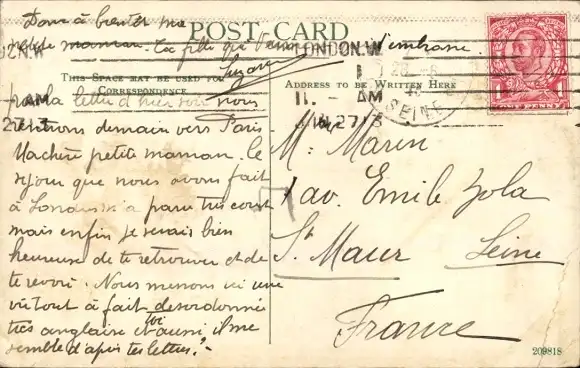 Donc à bientôt ma
petite maman. Ta fille qui t'embrasse.
Suzanne
POST CARD
LONDON.W
THIS SPACE MAY BE USED FOR
CORRESPONDENCE
ADDRESS TO BE WRITTEN HERE
11. - AM
27 13
SEINE
ONE PENNY
la lettre d'hier soir nous
rentrons demain vers Paris.
Ma chère petite maman. Le
séjour que nous avons fait
à Londres m'a paru très court
mais enfin je serais bien
heureuse de te retrouver et de
te revoir. Nous menons ici une
vie tout à fait desordonnée
très anglaise toi aussi il me
semble d'après tes lettres.
M. Marin
7 av. Emile Zola
St Maur Seine
France
209818